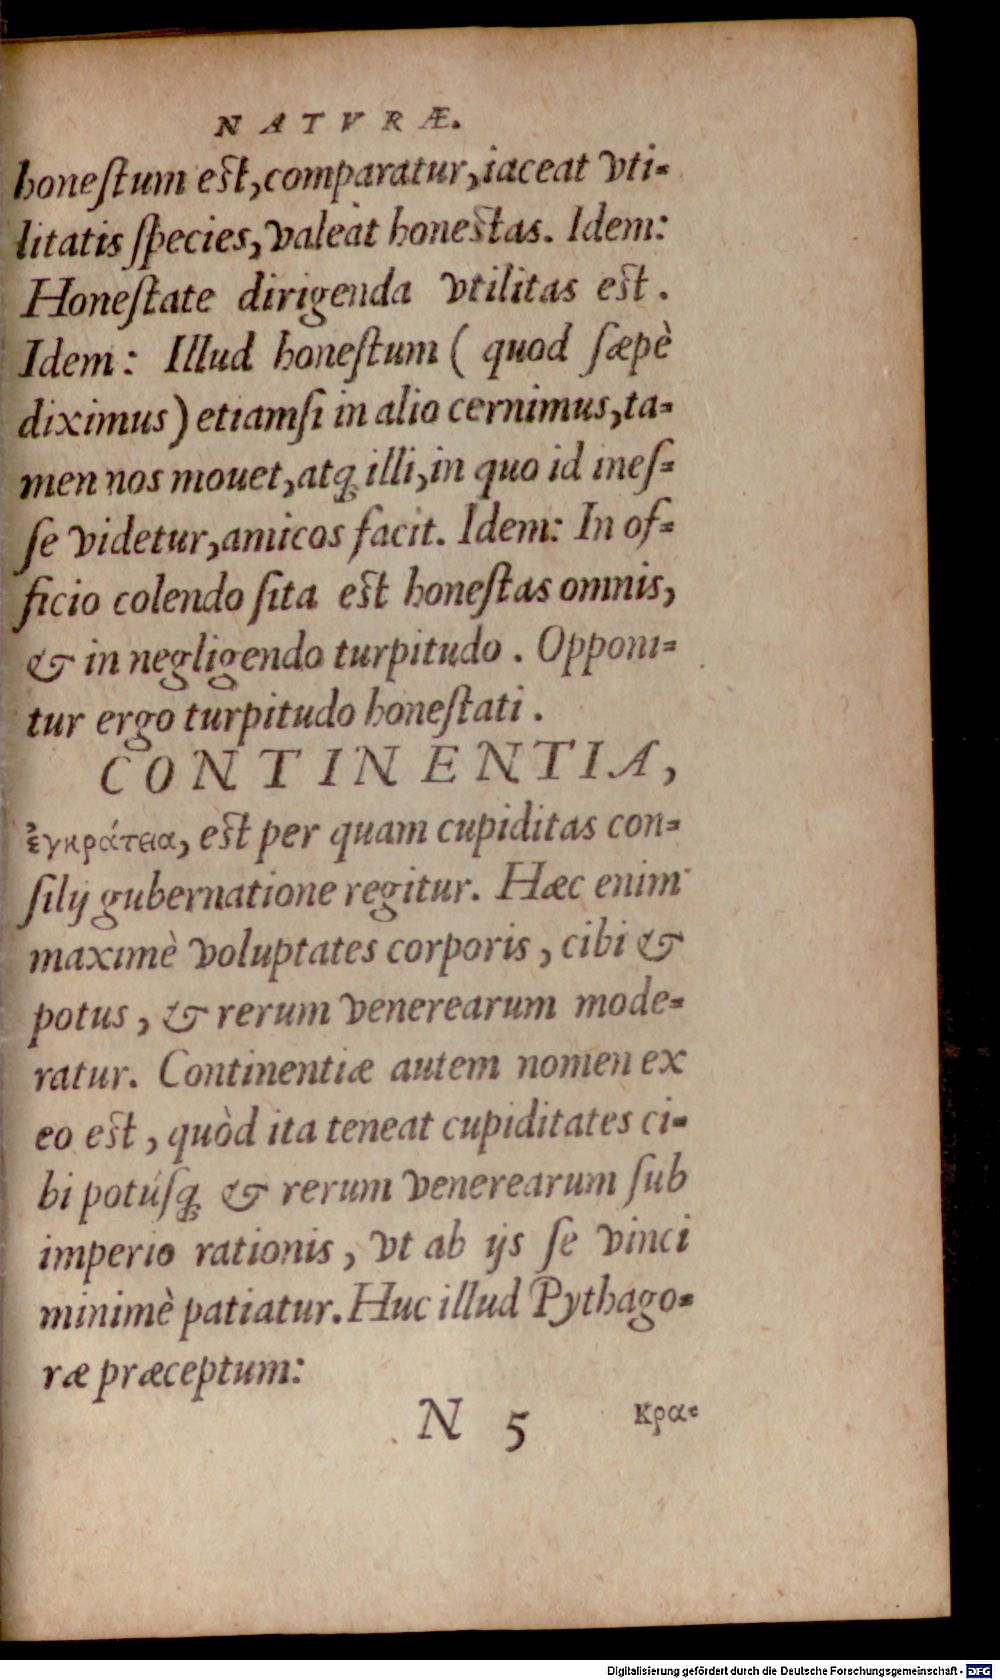 NATVRÆ.
honeſtum eſt, comparatur, iaceat vti-
litatis ſpecies, valeàt honeſtas. Idem:
Honeſtate dirigenda vtilitas eſt.
Idem: Illud honeſtum ( quod ſæpè
diximus) etiamſi in alio cernimus, ta-
men nos mouet, atq; illi, in quo id ineſ-
ſe videtur, amicos facit. Idem: In of-
ficio colendo ſita eſt honeſtas omnis,
& in negligendo turpitudo. Opponi-
tur ergo turpitudo honeſtati.
CONTINENTIA,
ἐγκράτεια, eſt per quam cupiditas con-
ſilij gubernatione regitur. Hæc enim
maximè voluptates corporis, cibi &
potus, & rerum venerearum mode-
ratur. Continentiæ autem nomen ex
eo eſt, quòd ita teneat cupiditates ci-
bi potúſq; & rerum venerearum ſub
imperio rationis, vt ab ijs ſe vinci
minimè patiatur. Huc illud Pythago-
ræ præceptum:
N 5 κρα-
Digitalisierung gefördert durch die Deutsche Forschungsgemeinschaft - DFG